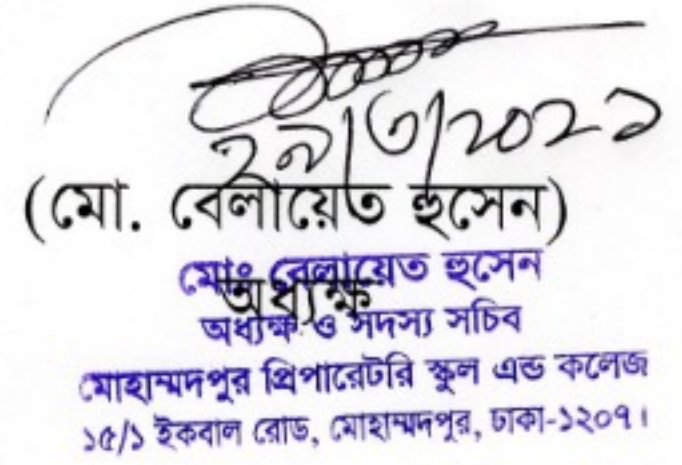 ২৯/৩/২০২১
(মো. বেলায়েত হুসেন)
মোঃ বেলায়েত হুসেন
অধ্যক্ষ
অধ্যক্ষ ও সদস্য সচিব
মোহাম্মদপুর প্রিপারেটরি স্কুল এন্ড কলেজ
১৫/১ ইকবাল রোড, মোহাম্মদপুর, ঢাকা-১২০৭।